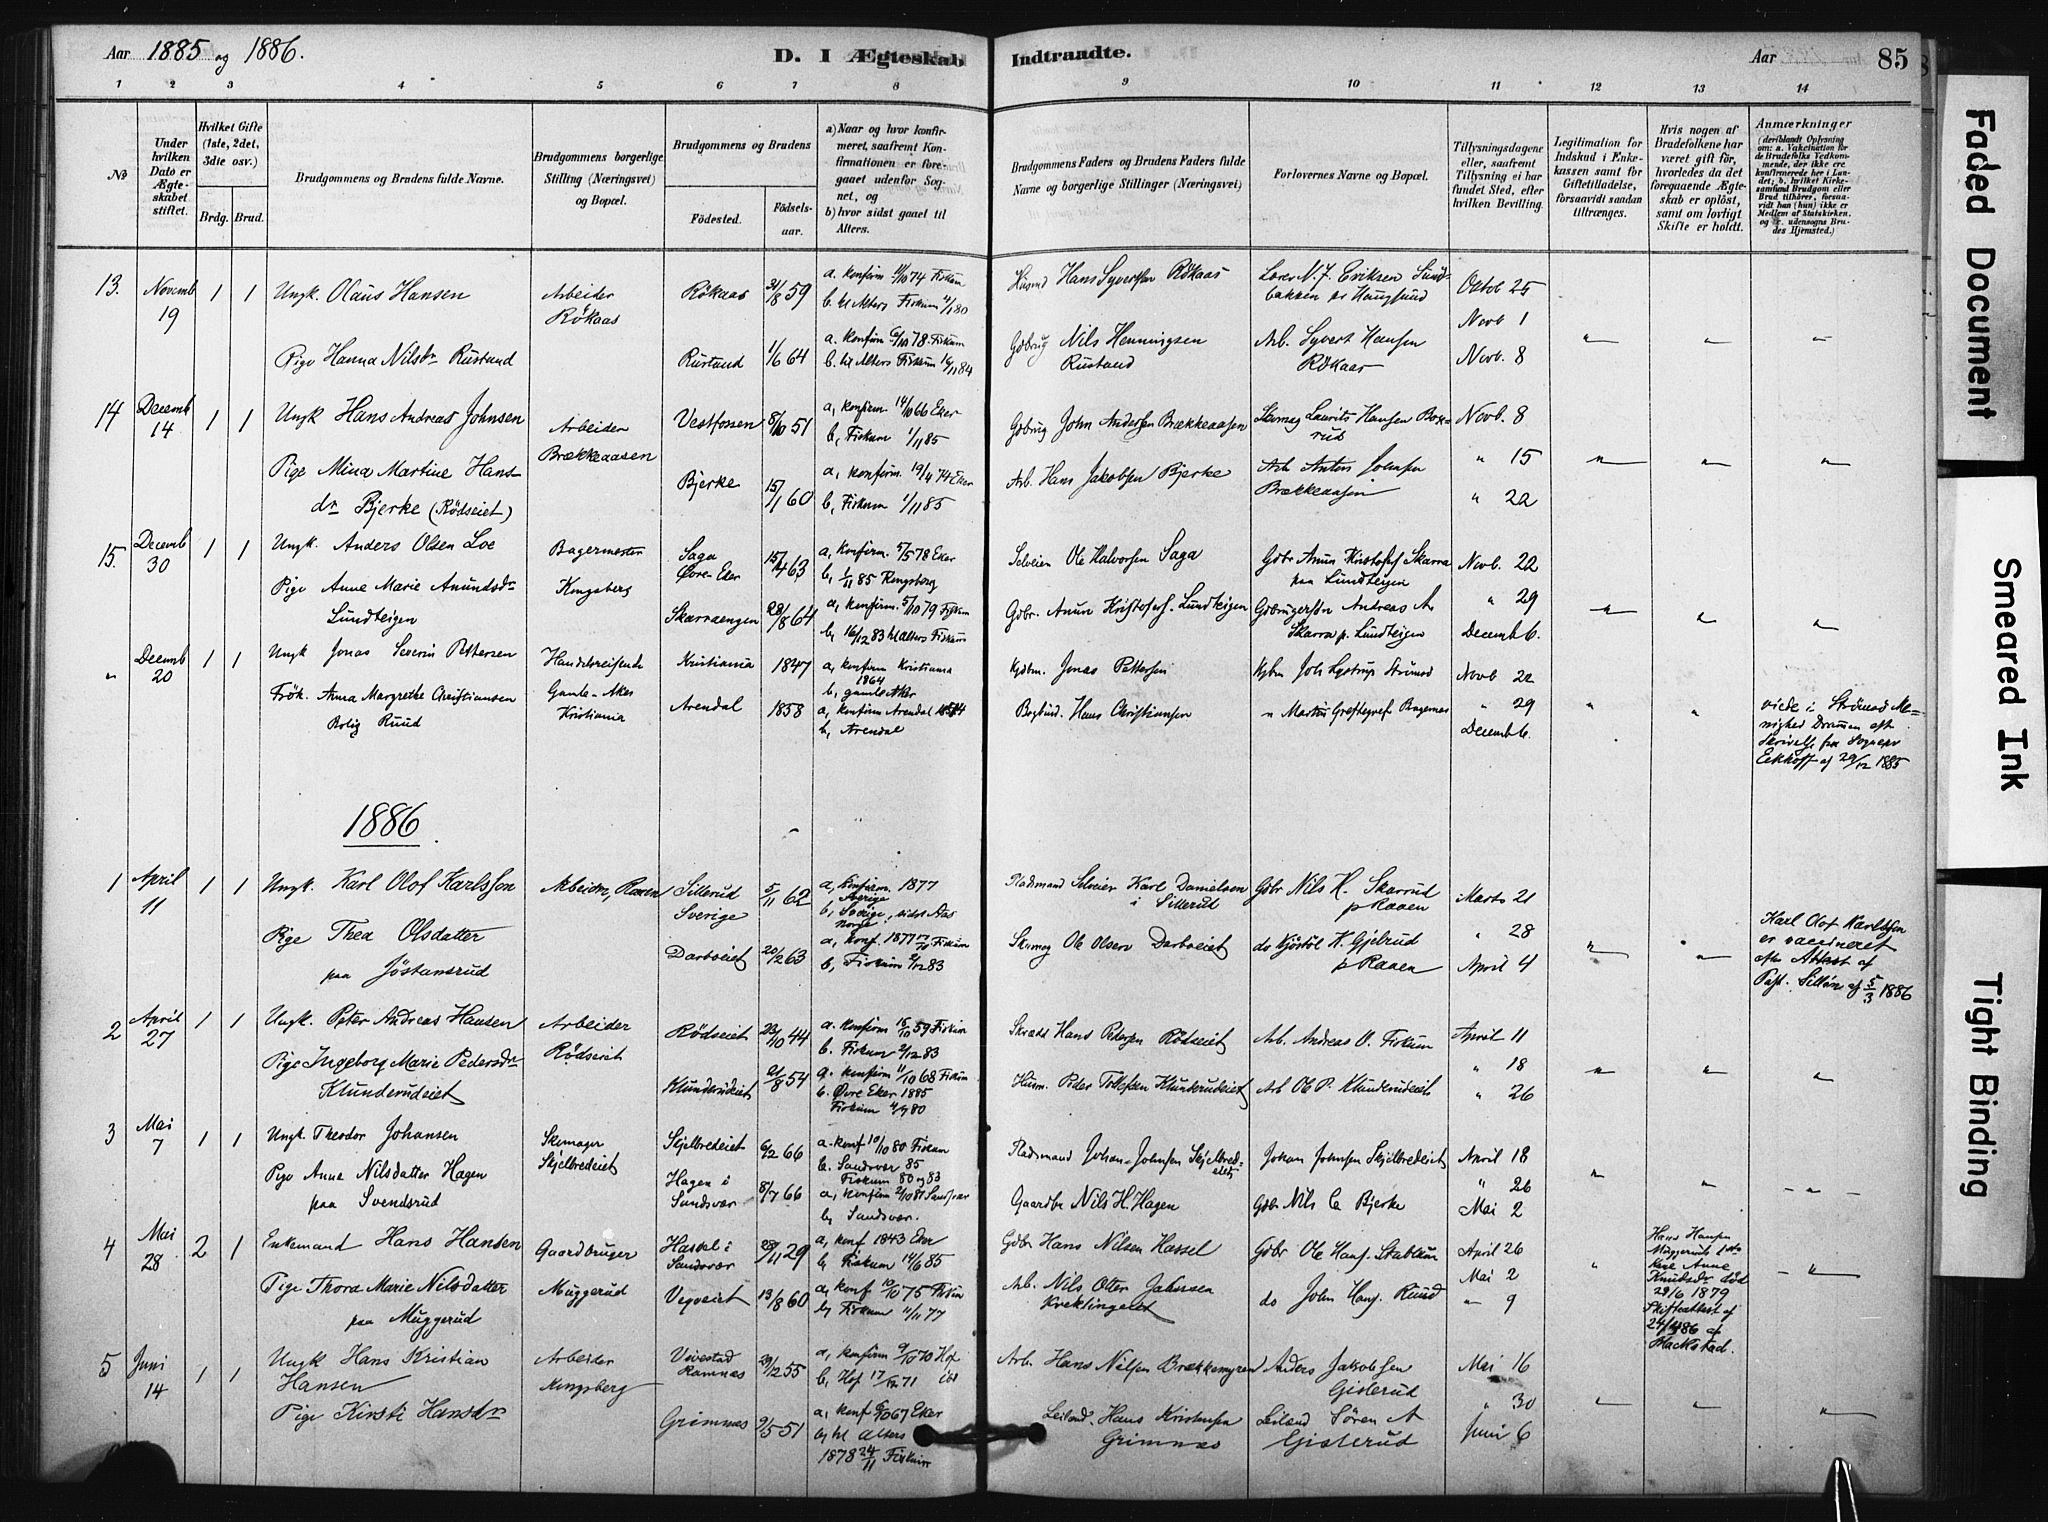 Aar 1885 og 1886.
D. I Ægteskab
Indtraadte.
Aar
85
1 2 3 4 5 6 7 8 9 10 11 12 13 14
No
Under hvilken Dato er Ægteskabet stiftet.
Hvilket Gifte (1ste, 2det, 3die osv.)
Brdg. Brud.
Brudgommens og Brudens fulde Navne.
Brudgommens borgerlige Stilling (Næringsvei) og Bopæl.
Brudgommens og Brudens
Fødested.
Fødselsaar.
a) Naar og hvor konfirmeret, saafremt Konfirmationen er foregaaet udenfor Sognet, og
b) hvor sidst gaaet til Alters.
Brudgommens Faders og Brudens Faders fulde Navne og borgerlige Stillinger (Næringsvei)
Forlovernes Navne og Bopæl.
Tillysningsdagene eller, saafremt Tillysning ei har fundet Sted, efter hvilken Bevilling.
Legitimation for Indskud i Enkekassen samt for Giftetilladelse, forsaavidt saadan tiltrænges.
Hvis nogen af Brudefolkene har været gift før, hvorledes da det foregaaende Ægteskab er opløst, samt om lovligt Skifte er holdt.
Anmærkninger
(deriblandt Oplysning om: a. Vakcination for de Brudefolks Vedkommende, der ikke ere konfirmerede her i Landet; b. hvilket Kirkesamfund Brudgom eller Brud tilhører, forsaavidt han (hun) ikke er Medlem af Statskirken, og c. udensogns Brudes Hjemsted.)
13. Novemb 19 1 1 Ungk. Olaus Hansen
Arbeider Rökaas
Rökaas 31/8 59
a. Konfirm 11/10 74 Fiskum
b. til Alters Fiskum 4/1 80
Husmd Hans Syvertsen Rökaas
Lærer N. J. Eriksen Sundbakken
Octob 25
Novb 1
Pige Hanna Nilsdr Rustand
Rustand 1/6 64
a. Konfirm 6/10 78 Fiskum
b. til Alters Fiskum 16/11 84
Gdbrug Nils Henningsen Rustand
Arb. Syvert Hansen Rökaas
Novb. 8
14 Decemb 14 1 1 Ungk Hans Andreas Johnsen
Arbeider Brækkeaasen
Vestfossen 8/10 51
a, Konfirm 14/10 66 Eker
b, Fiskum 1/11 85
Gdbrug John Andersen Brækkeaasen
Skomag Laurits Hansen
Novb. 8
" 15
Pige Mina Martine Hansdr Bjerke (Rödseiet)
Bjerke 15/1 60
a, Konfirm. 19/4 74 Eker
b, Fiskum 1/11 85
Arb. Hans Jakobsen Bjerke
Arb Anton Johnsen Brækkeaasen
" 22
15. Decemb 30 1 1 Ungk. Anders Olsen Loe
Bagermester Kongsberg
Saga Øvre-Eker 63
a, Konfirm. 5/5 78 Eker
b, 1/11 85 Kongsberg
Selveier Ole Halvorsen Saga
Gdbr Anun Kristofers Skarra paa Lundteigen
Novb. 22
" 29
Pige Anne Marie Anundsdr Lundteigen
Skarraengen 28/8 64
a, Konfirm. 5/10 79 Fiskum
b, 16/12 83 til alters Fiskum
Gdbr. Anun Kristofers. Lundteigen
Gdbrugersön Andreas A. Skarra p. Lundteigen
Decemb 6.
" Decemb 20 1 1 Ungk Jonas Severin Pettersen
Handelsreisende Gamle-Aker Kristiania
Kristiania 1847
a, Konfirm Kristiania 1864
b, gamle Aker
Kjøbm. Jonas Pettersen
Novb 22
" 29
Frök. Anna Margrethe Christiansen Bolig Ruud
Arendal 1858
a, Konfirm Arendal
b, Arendal
Bogbind. Hans Christiansen
Decemb 6.
viede i Strömsö Menighed Drammen eft. Skrivelse fra Sognepr Eckhoff af 29/12 1885
1886
1 April 11 1 1 Ungk. Karl Olof Karlsson
Arbeider, Raaen
Sillerud Sverige 5/11 62
a, Konfirm. 1877 Sverige
b, Sverige, sidst Aas Norge
Pladsmand Selveier Karl Danielsen i Sillerud
Gdbr Nils H. Skarrud p Raaen
Marts 21
" 28
Pige Thea Olsdatter paa Jöstansrud
Darbveiet 20/2 63
a, Konf. 1877 Fiskum
b, Fiskum 2/12 83
Skomag Ole Olsen Darbveiet
do Kjöstöl K. Gjelrud p Raaen
April 4
Karl Olof Karlssen er vaccineret efter Attest af Past. Sillén af 5/3 1886
2 April 27 1 1 Ungk. Peter Andreas Hansen
Arbeider Rödseiet
Rödseiet 23/10 44
a. Konfirm 15/10 59 Fiskum
b. Fiskum 2/12 83
Skrædd Hans Pedersen Rödseiet
Arb. Andreas O. Fiskum
April 11
" 18
Pige Ingeborg Marie Pedersdr Klunderudeiet
Klunderudeiet 21/8 54
a. Konfirm 11/10 68 Fiskum
b. Øvre Eker 1885
Fiskum 4/9 80
Husm. Peder Tollefsen Klunderudeiet
Arb Ole P. Klunderudeiet
" 26
3 Mai 7 1 1 Ungk. Theodor Johansen
Skomager Skjelbredeiet
Skjelbredeiet 6/2 66
a. Konf 10/10 80 Fiskum
b. Sandsvær 85
Fiskum 80 og 83
Pladsmand Johan Johnsen Skjelbredeiet
Johan Johnsen Skjelbredeiet
April 18
" 26
Pige Anne Nilsdatter Hagen paa Svendsrud
Hagen i Sandsvær 8/7 66
a, Konfirm 2/10 81 Sandsvær
b, Sandsvær.
Gaardbr Nils H. Hagen
Gdbr Nils C. Bjerke
Mai 2
4 Mai 28 2 1 Enkemand Hans Hansen
Gaardbruger Muggerud
Hassel i Sandsvær 29
a, Konf 1843 Eker
b, Fiskum 14/6 85
Gdbr Hans Nilsen Hassel
Gdbr. Ole Hans. Stablum
April 26
Mai 2
Pige Thora Marie Nilsdatter paa Muggerud
Vegveiet 13/8 60
a, Konf 10/10 75 Fiskum
b, Fiskum 11/11 77
Arb. Nils Otter Jahnsen Kreklingeiet
do John Hans. Ruud
" 9
Hans Hansen Muggeruds 1ste Kone Anne Knudsdr död 29/6 1879 Skifteattest af 24/4 86 af Hackstad.
5 Juni 14 1 1 Ungk Hans Kristian Hansen
Arbeider Kongsberg
Vivestad Ramnæs 29/12 55
a, Konfirm 9/10 70 Hof
b, Hof 17/12 71
Arb. Hans Nilsen Brækkemyren
Anders Jakobsen Gislerud
Mai 16
" 30
Pige Kirsti Hansdr
Grimnæs 9/5 51
a, Konf 67 Eker
b, til Alters 1878 24/11 Fiskum
Leiland. Hans Kristensen Grimnæs
Leiland Sören A Gislerud
Juni 6
Faded Document
Smeared Ink
Tight Binding